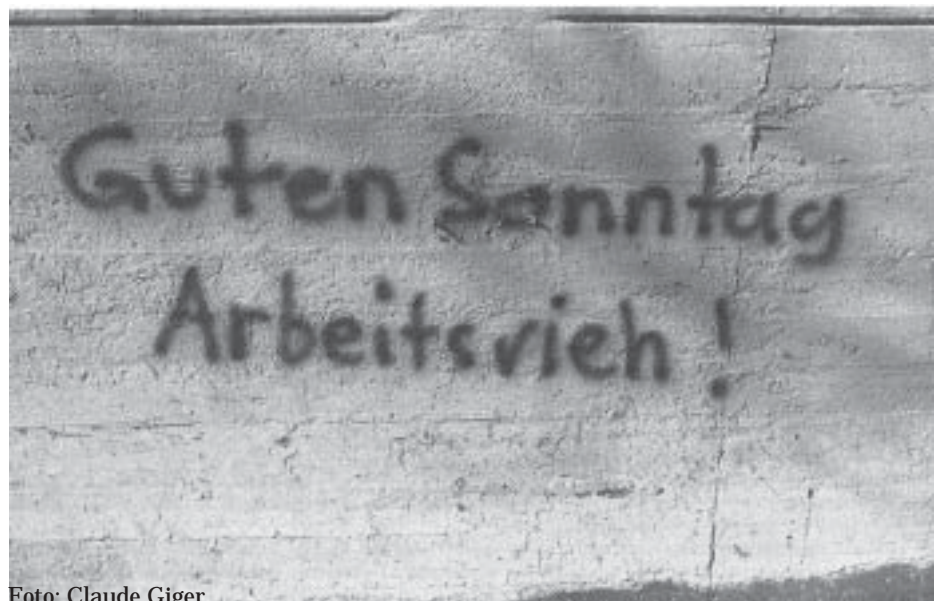 Guten Sonntag
Arbeitsvieh!
Foto: Claude Giger